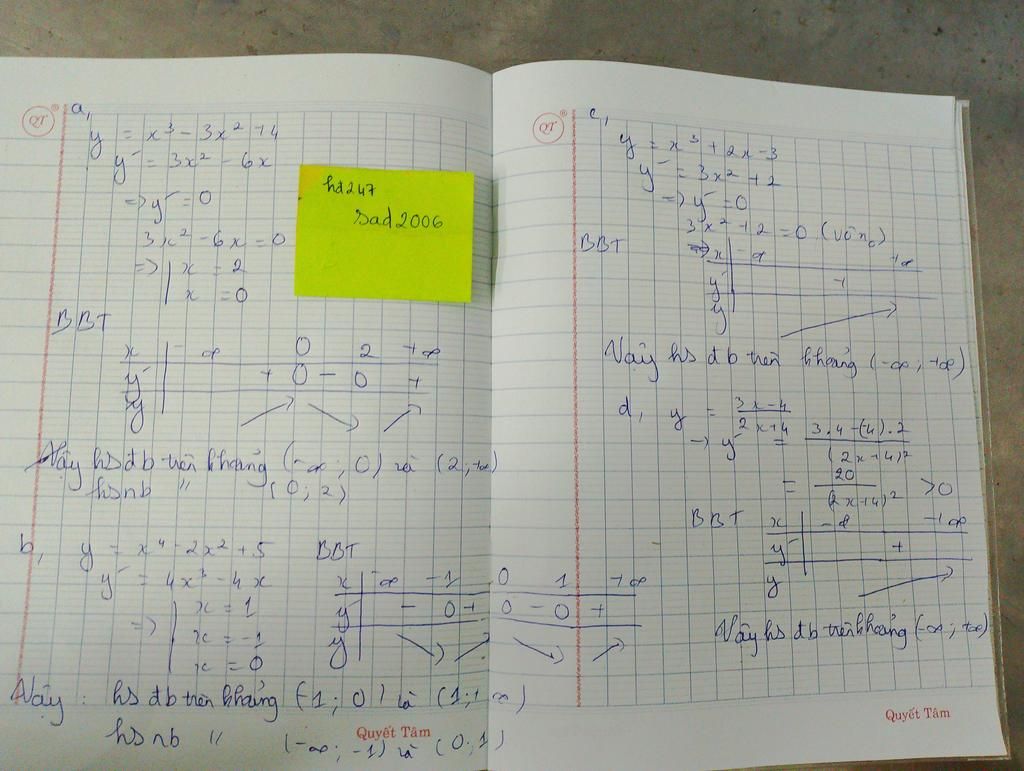 QT
a,
y = x³ - 3x² + 4
y' = 3x² - 6x
=> y' = 0
3x² - 6x = 0
=> x = 2
x = 0
hd247
sad2006
BBT
x -∞ 0 2 +∞
y' + 0 - 0 +
y
Vậy hs đb trên khoảng (-∞; 0) và (2; +∞)
hs nb " (0; 2)
b, y = x⁴ - 2x² + 5
y' = 4x³ - 4x
=> x = 1
x = -1
x = 0
BBT
x -∞ -1 0 1 +∞
y' - 0 + 0 - 0 +
y
Vậy: hs đb trên khoảng (-1; 0) và (1; +∞)
hs nb " (-∞; -1) và (0; 1)
Quyết Tâm
QT
c,
y = x³ + 2x - 3
y' = 3x² + 2
=> y' = 0
3x² + 2 = 0 (vô no)
BBT
=> x -∞ +∞
y' +
y
Vậy hs đb trên khoảng (-∞; +∞)
d, y = (3x-4)/(2x+4)
→ y' = (3.4-(-4).2)/(2x+4)²
= 20/(2x+4)² >0
BBT x -∞ +∞
y' +
y
Vậy hs đb trên khoảng (-∞; +∞)
Quyết Tâm